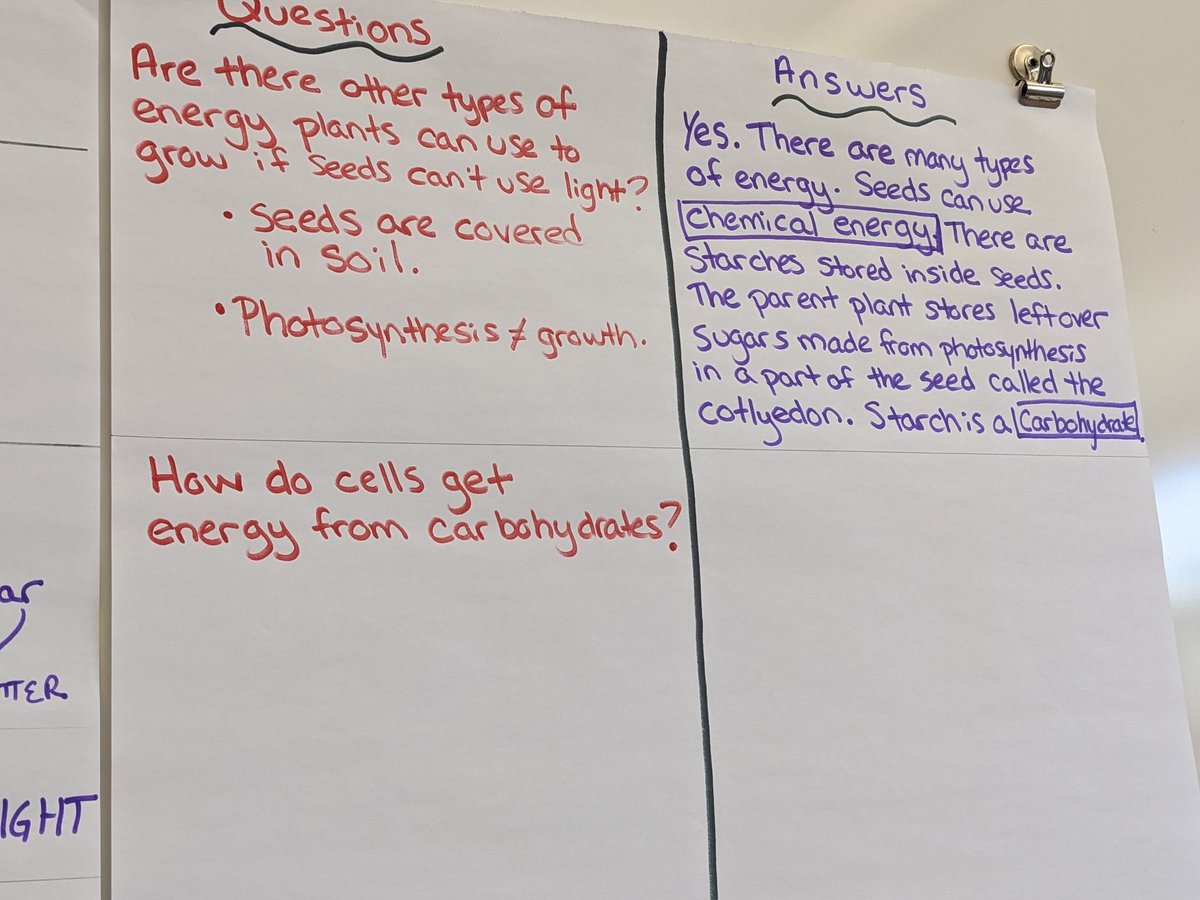 Questions
Are there other types of
energy plants can use to
grow if seeds can't use light?
• Seeds are covered
in soil.
• Photosynthesis ≠ growth.
Answers
Yes. There are many types
of energy. Seeds can use
chemical energy. There are
starches stored inside seeds.
The parent plant stores leftover
sugars made from photosynthesis
in a part of the seed called the
cotlyedon. Starch is a carbohydrate.
How do cells get
energy from carbohydrates?
ar
TTER
IGHT